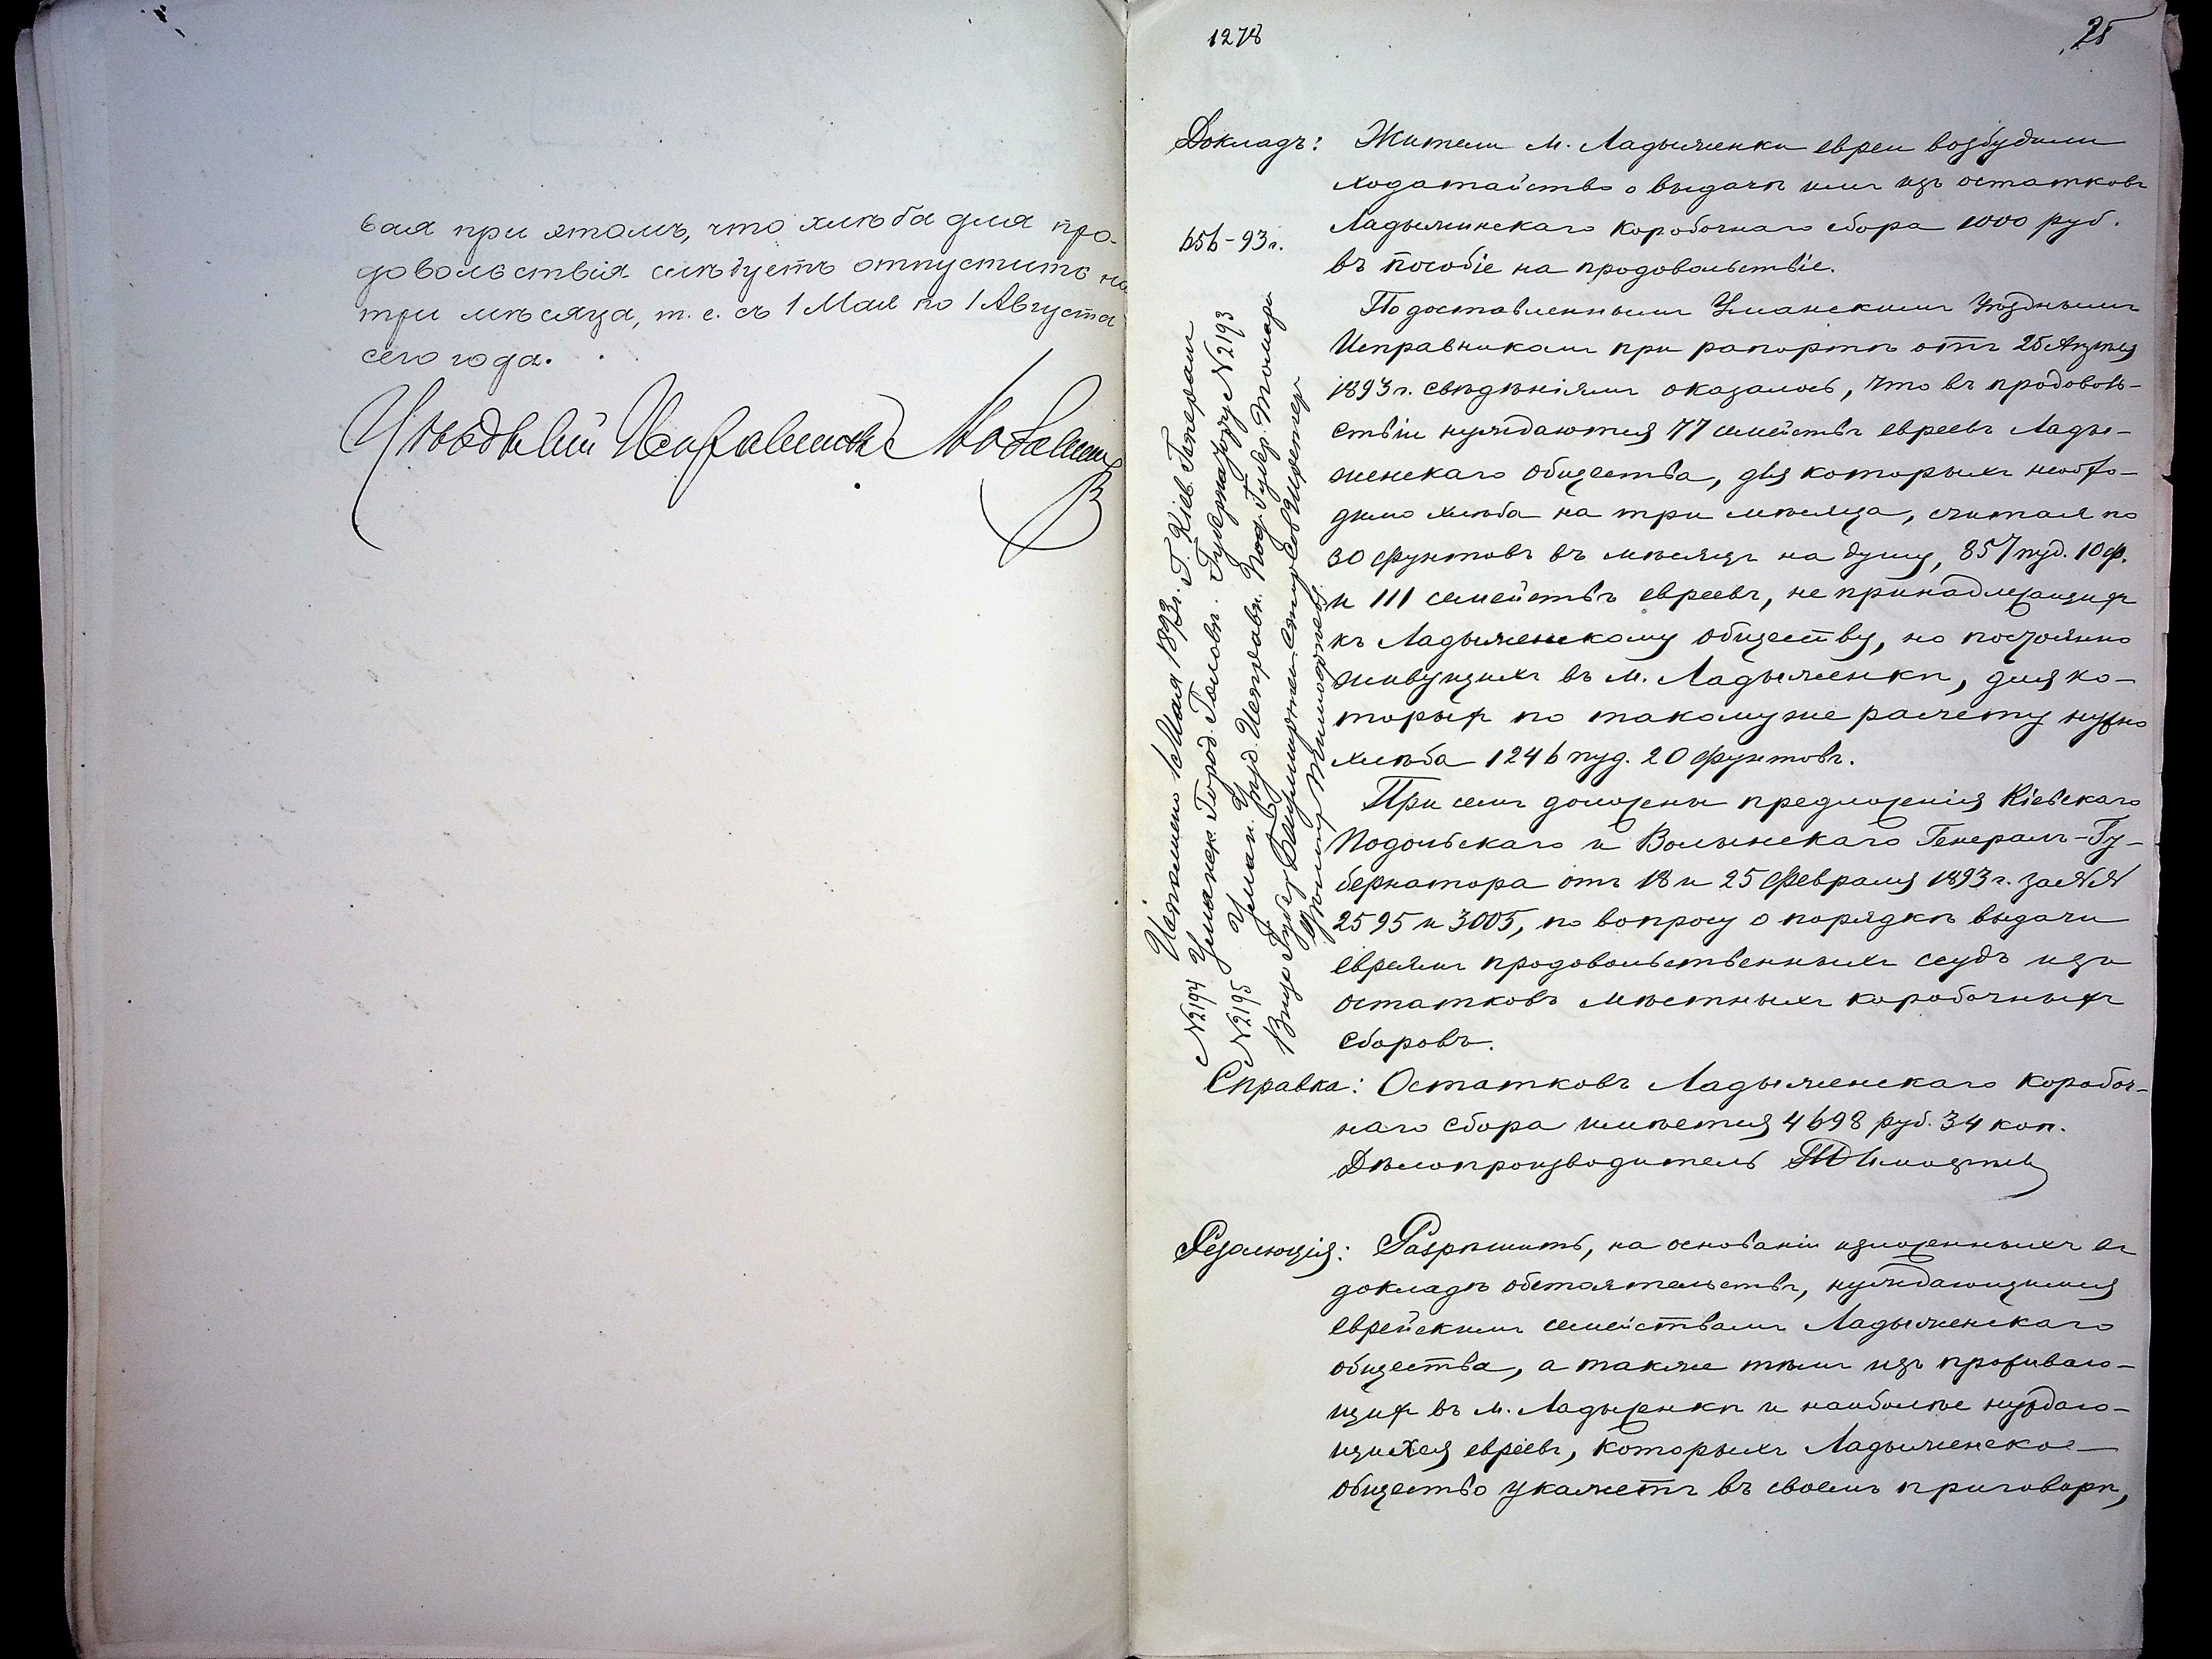 вая при этомъ, что хлѣба для про-
довольствія слѣдуетъ отпустить на
три мѣсяца, т. е. съ 1 Мая по 1 Августа
сего года.
Уѣздный Исправникъ
1278
25
Докладъ: Жители м. Ладыженки евреи возбудили
ходатайство о выдачѣ имъ изъ остатковъ
Ладыжинскаго коробочнаго сбора 1000 руб.
въ пособіе на продовольствіе.
656-93 г.
По доставленнымъ Уманскимъ Уѣзднымъ
Исправникомъ при рапортѣ отъ 25 Апрѣля
1893 г. свѣдѣніямъ оказалось, что въ продоволь-
ствіи нуждаются 77 семействъ евреевъ Лады-
женскаго общества, для которыхъ необхо-
димо хлѣба на три мѣсяца, считая по
30 фунтовъ въ мѣсяцъ на душу, 857 пуд. 10 ф.
и 111 семействъ евреевъ, не принадлежащихъ
къ Ладыженскому обществу, но постоянно
живущихъ въ м. Ладыженкѣ, для ко-
торыхъ по такому же расчету нужно
хлѣба 1246 пуд. 20 фунтовъ.
При семъ доложены предложенія Кіевскаго
Подольскаго и Волынскаго Генералъ-Гу-
бернатора отъ 18 и 25 Февраля 1893 г. за №№
2595 и 3005, по вопросу о порядкѣ выдачи
евреямъ продовольственныхъ ссудъ изъ
остатковъ мѣстныхъ коробочныхъ
сборовъ.
Исполнено Мая 1893 г. Г. Кіев. Генералъ
Губернатору №2193
№2194 Уманск. Город. Головѣ.
№2195 Уман. Уѣзд. Исправн. Под. Губер. Томара
Вице Губер.
Справка: Остатковъ Ладыженскаго коробоч-
наго сбора имѣется 4698 руб. 34 коп.
Дѣлопроизводитель
Резолюція: Разрѣшить, на основаніи изложенныхъ въ
докладѣ обстоятельствъ, нуждающимся
еврейскимъ семействамъ Ладыженскаго
общества, а также тѣмъ изъ проживаю-
щихъ въ м. Ладыженкѣ и наиболѣе нуждаю-
щихся евреевъ, которыхъ Ладыженское
общество укажетъ въ своемъ приговорѣ,